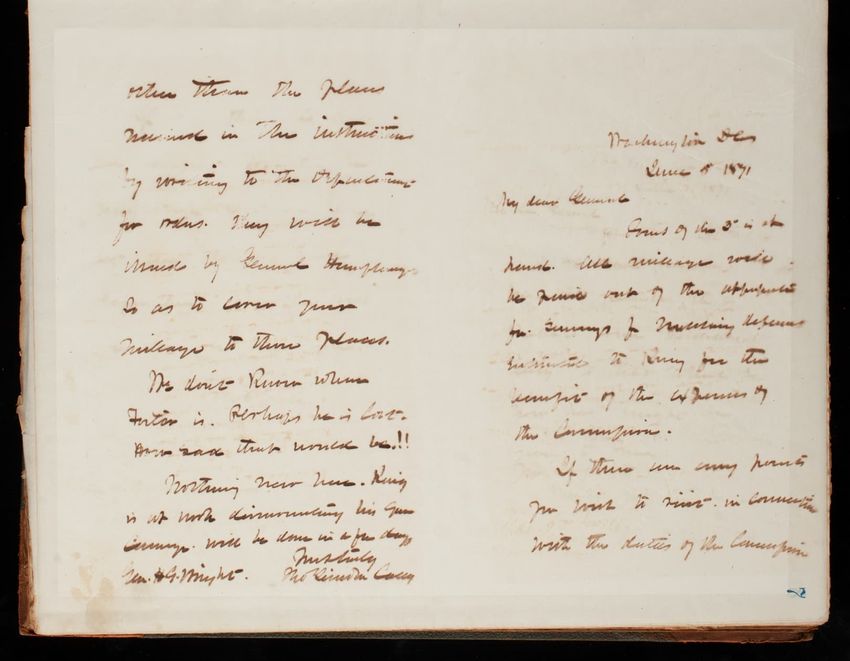 other than the places
named in the instructions
by writing to the Department
for orders. They will be
issued by General Humphreys
So as to cover your
mileage to those places.
We dont Know where
Foster is. Perhaps he is lost.
How sad that would be.!!
Nothing new here. King
is at work dismounting his Gun
Carriage. Will be done in a few days
Truly
Gen. H.G. Wright. Thos Lincoln Casey
Washington DC
June 5 1871
My dear General
Yours of the 3d is at
hand. All mileage will
be paid out of the
for Surveys for Military defences
to King for the
benefit of the expenses of
the Commission.
If there are any points
you wish to visit in connection
with the duties of the Commission